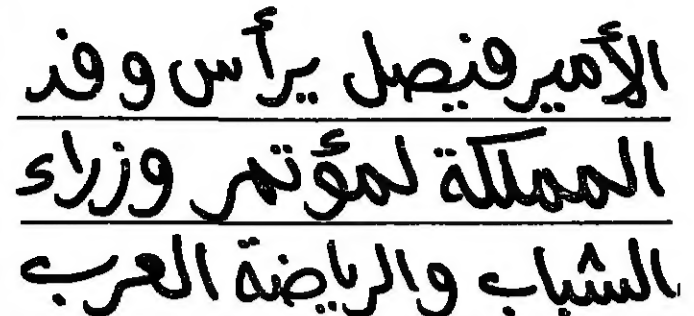 الأمير فيصل يرأس وفد
المملكة لمؤتمر وزراء
الشباب والرياضة العرب